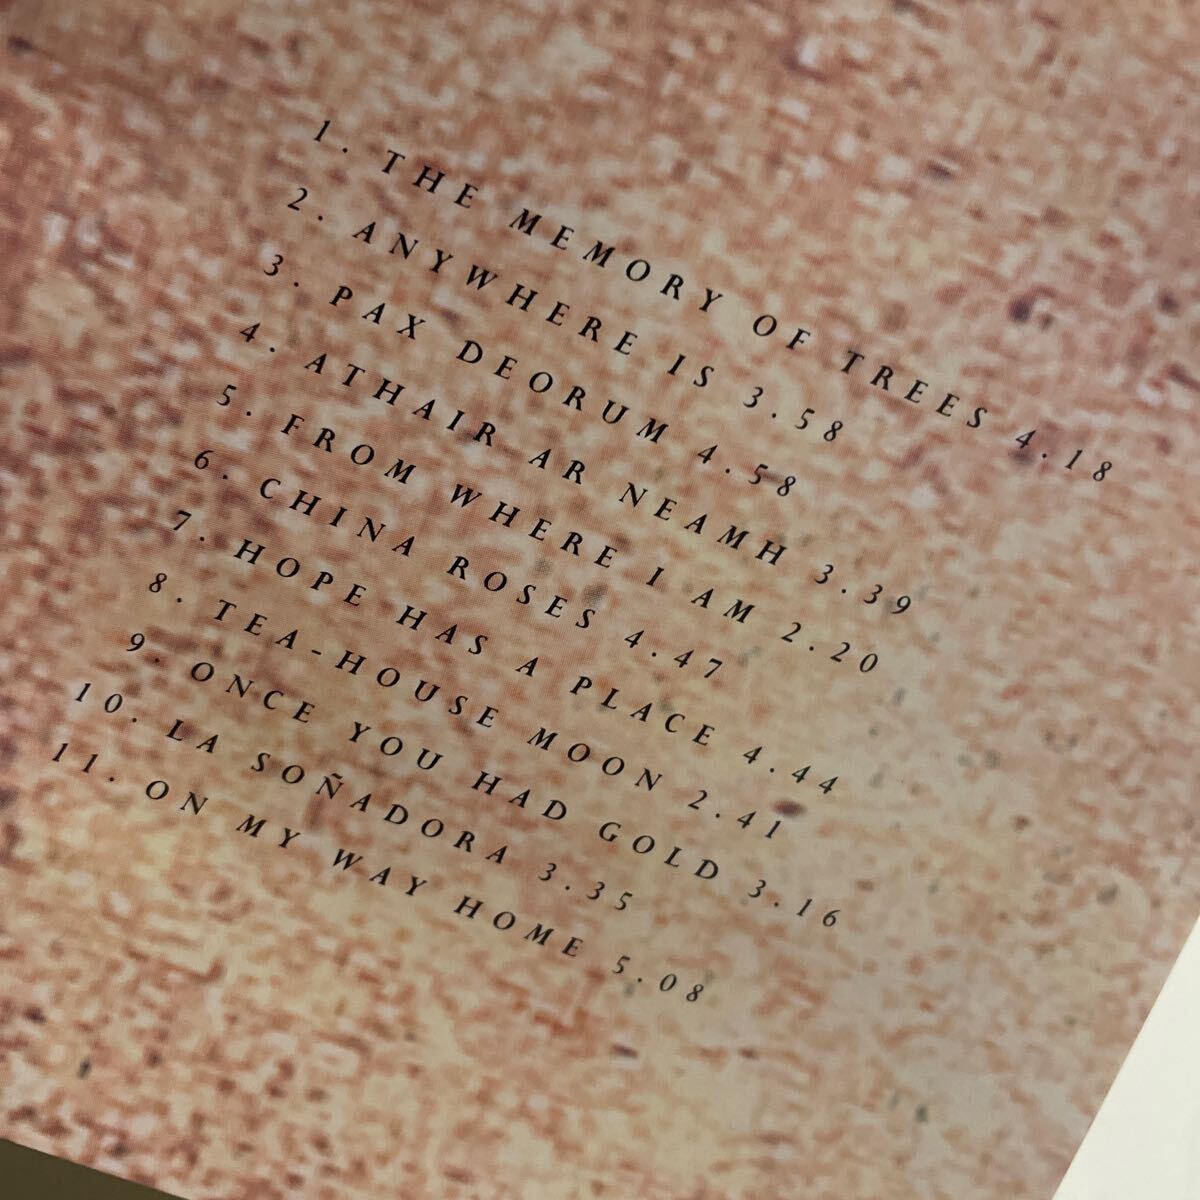 1. THE MEMORY OF TREES 4.18
2. ANYWHERE IS 3.58
3. PAX DEORUM 4.58
4. ATHAIR AR NEAMH 3.39
5. FROM WHERE I AM 2.20
6. CHINA ROSES 4.47
7. HOPE HAS A PLACE 4.44
8. TEA-HOUSE MOON 2.41
9. ONCE YOU HAD GOLD 3.16
10. LA SOÑADORA 3.35
11. ON MY WAY HOME 5.08